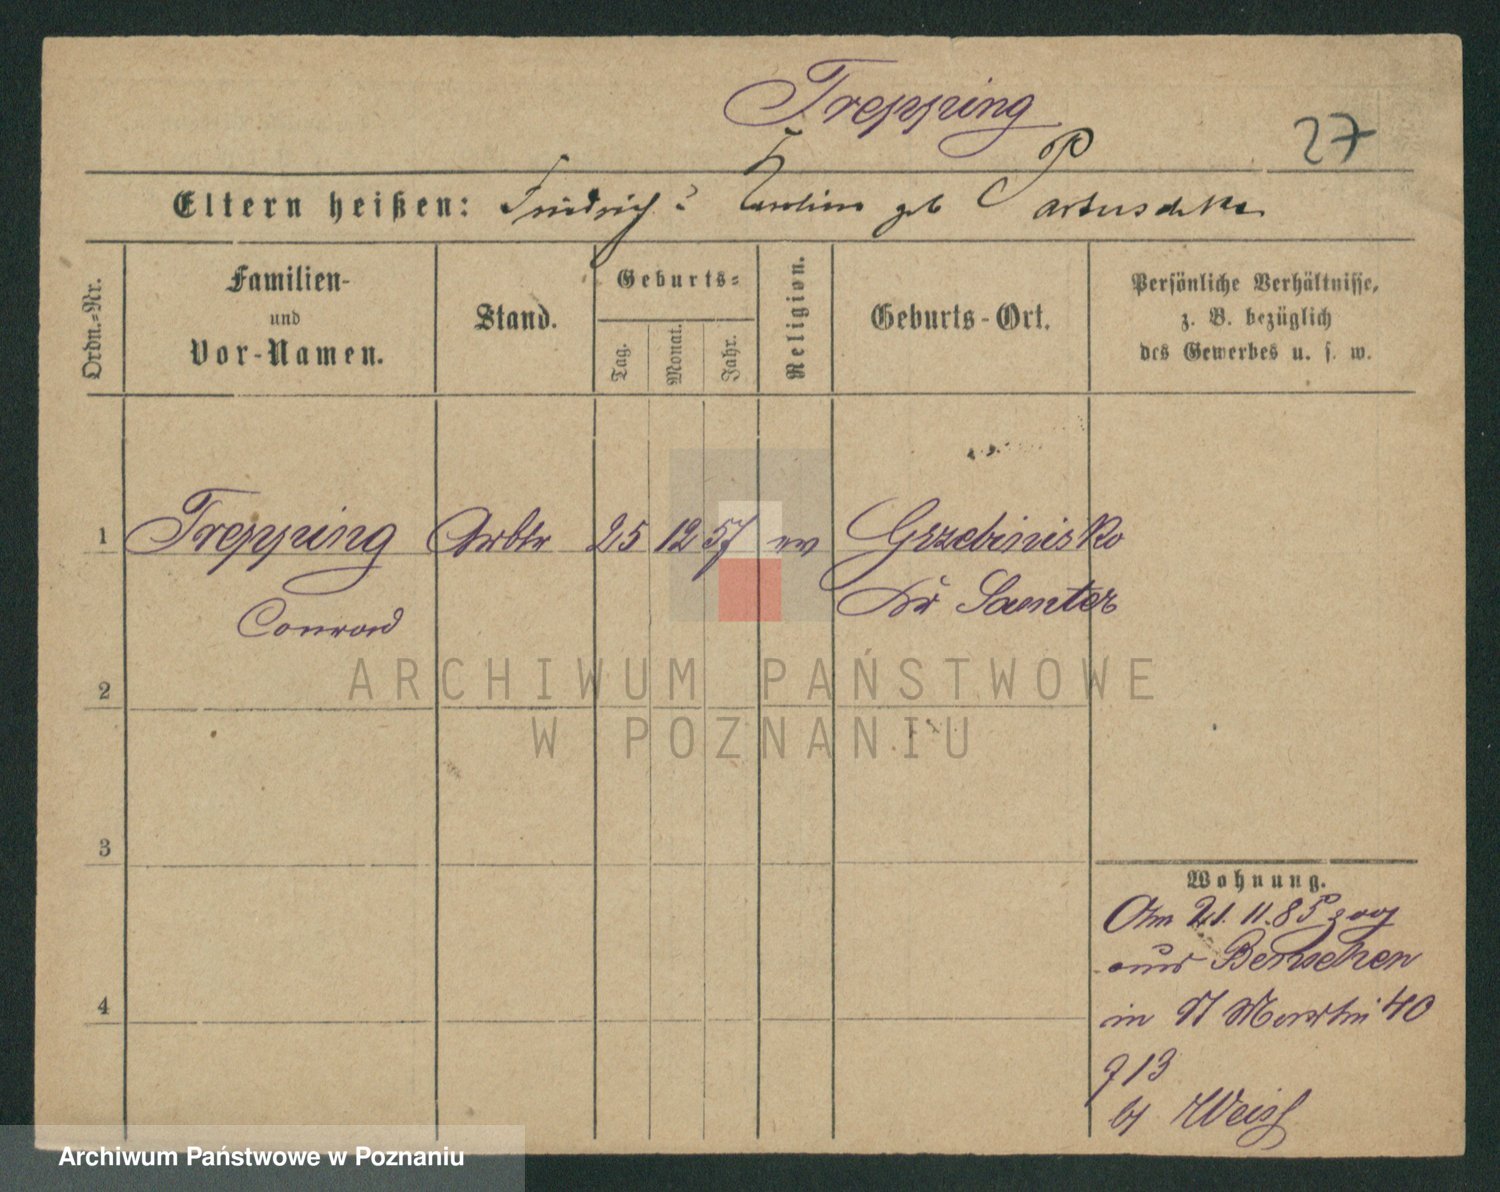 Trepping
27
Eltern heißen: Friedrich u. Karoline geb
Ordn.=Nr.
Familien-
und
Vor-Namen.
Stand.
Geburts=
Tag.
Monat.
Jahr.
Religion.
Geburts-Ort.
Persönliche Verhältnisse,
z. B. bezüglich
des Gewerbes u. s. w.
1 Trepping Arbtr 25 12 57 ev Grzebinisko
Conrad Kr Samter
2
3
4
Wohnung.
Am 21.11.85 zog
aus Bentschen
in St Martin 40
713
bj Weiss
ARCHIWUM PAŃSTWOWE
W POZNANIU
Archiwum Państwowe w Poznaniu